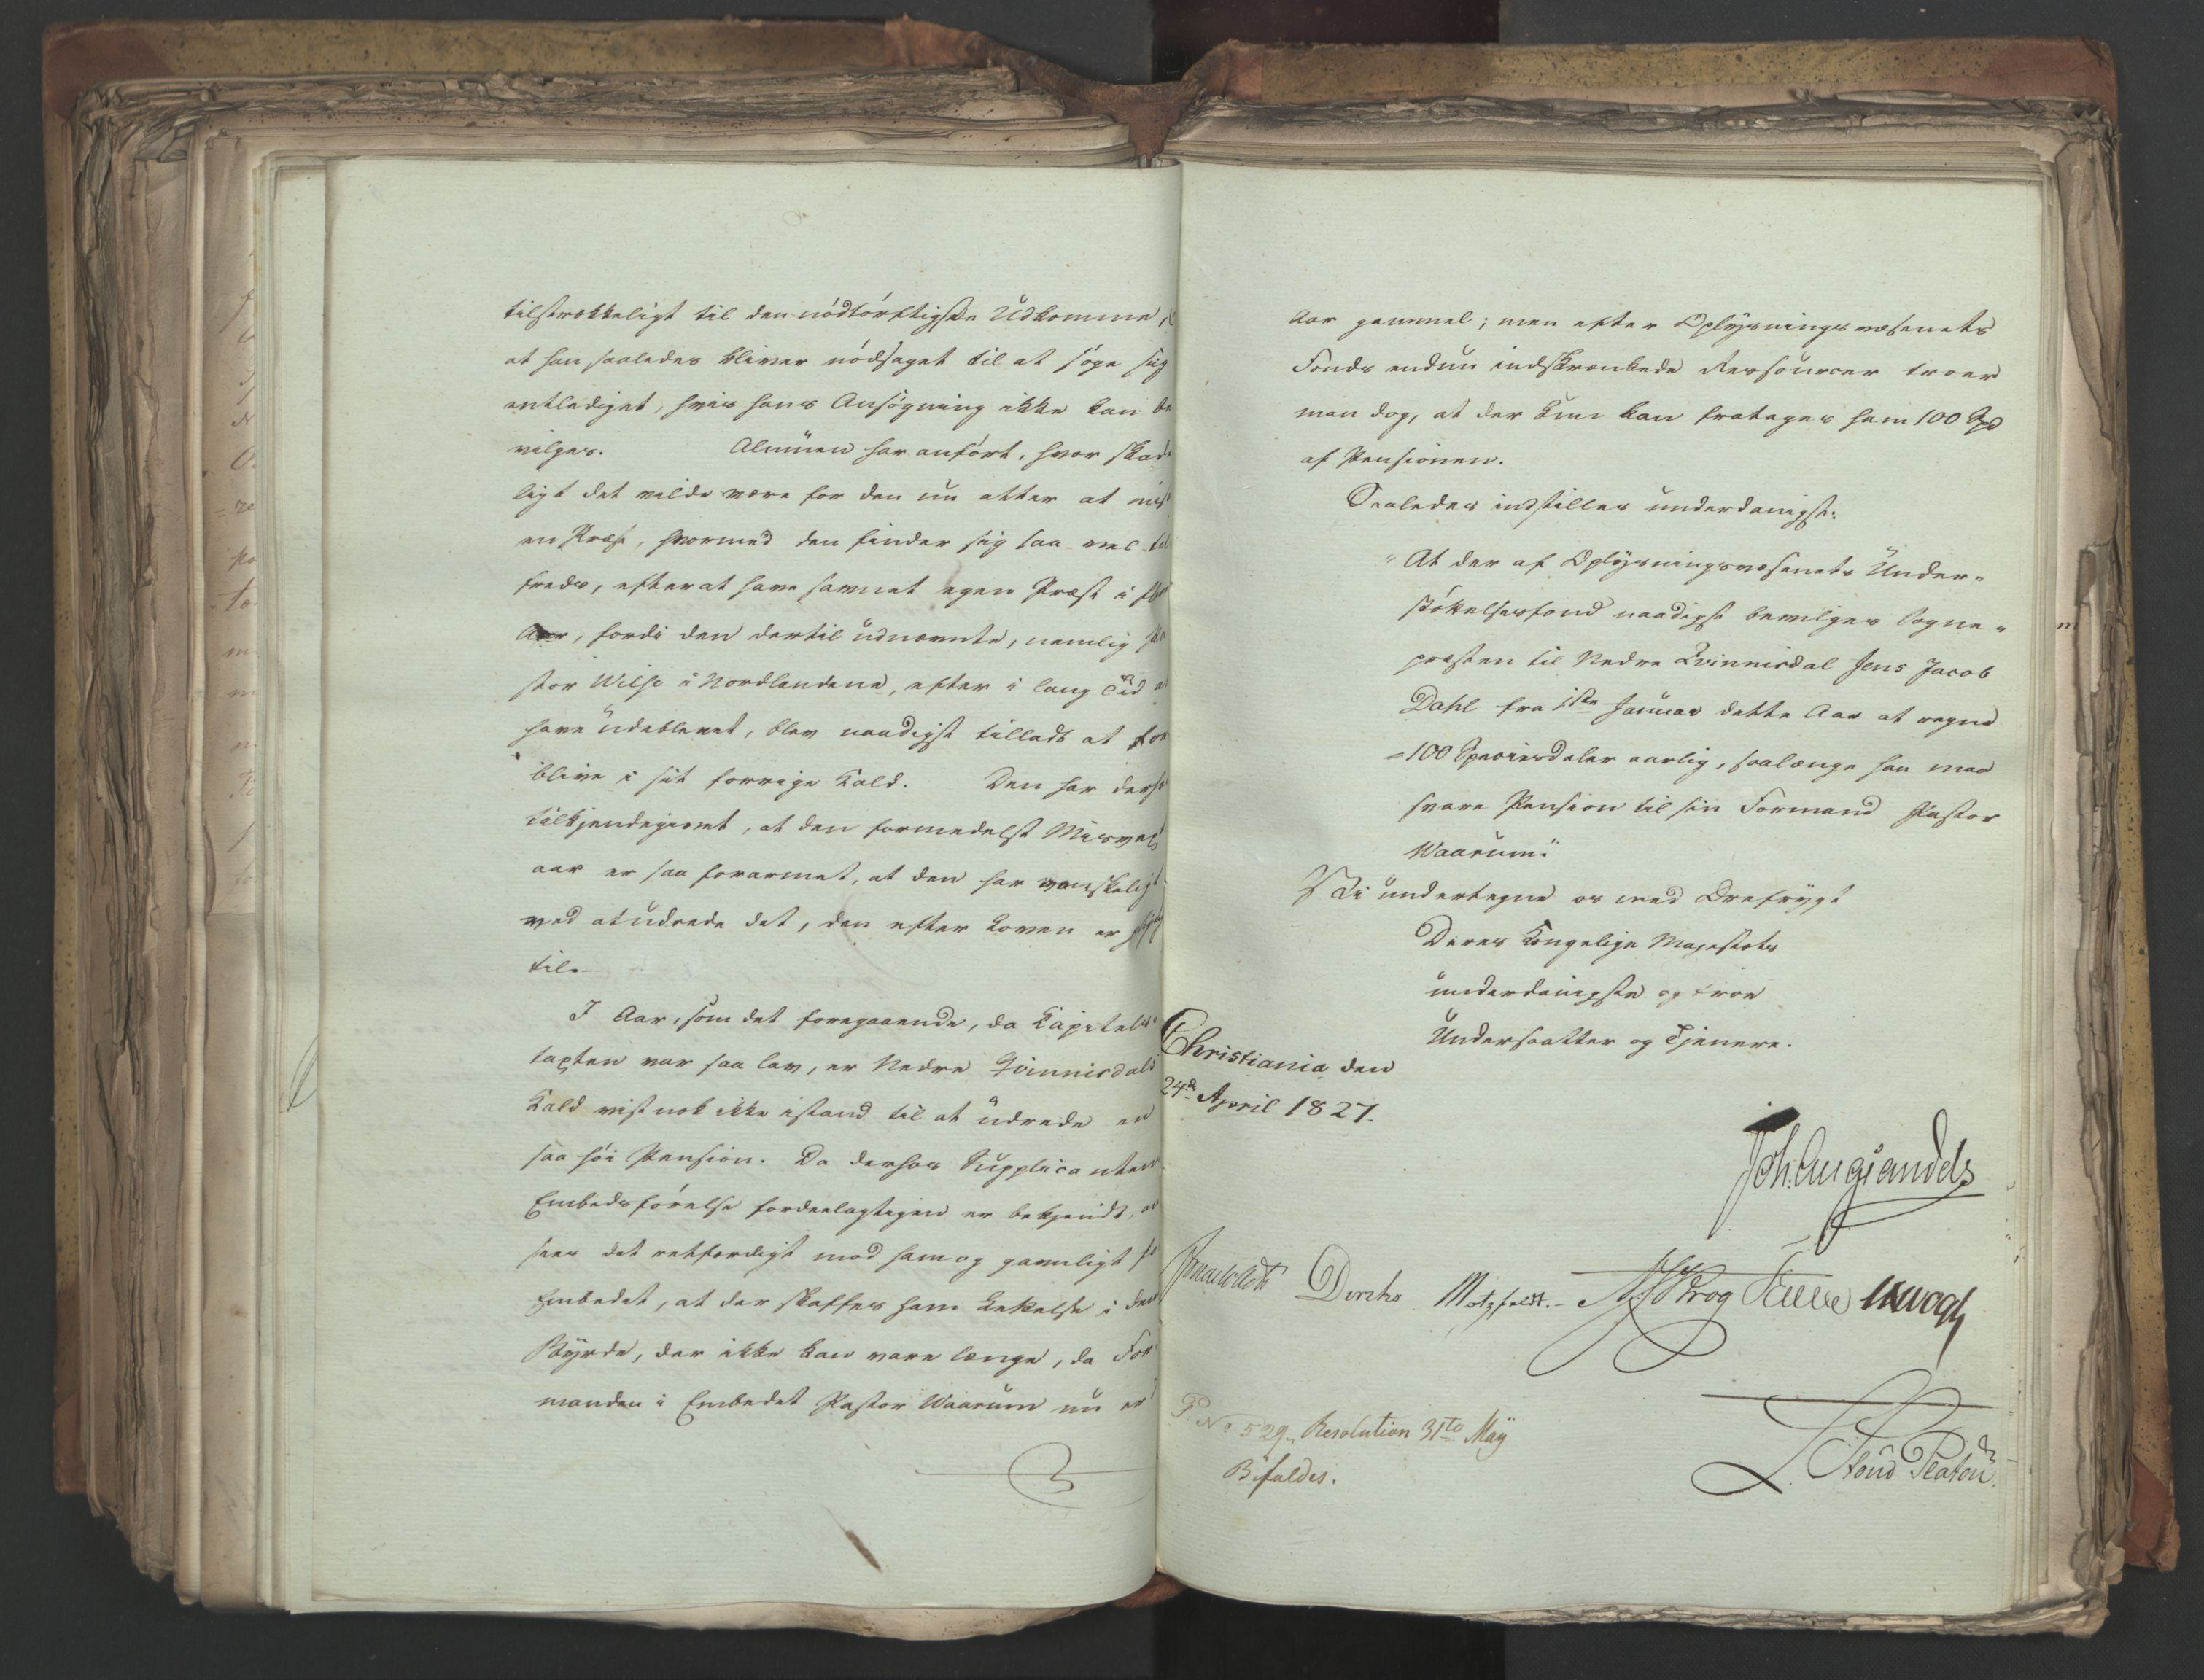 tilstrækkeligt til den nödtörftigste Udkomme,
at han saaledes bliver nödsaget til at söge sig
entlediget, hvis hans Ansögning ikke kan be
vilges. Almuen har anfört, hvor skade
ligt det vilde være for den nu atter at mis
en Præst, hvormed den finder sig saa vel til
freds, efterat have savnet egen Præst i flere
Aar, fordi den dertil udnævnte, nemlig Pa
stor Wilse i Nordlandene, efter i lang Tid at
have udeblevet, blev naadigst tilladt at for
blive i sit forrige Kald. Den har derhos
tilkjendegivet, at den formedelst Misvæxt
aar er saa forarmet, at den har vanskeligt
ved at udrede det, den efter Loven er pligtig
til.
I Aar, som det foregaaende, da Kapitels
taxten var saa lav, er Nedre Qvinnisdals
Kald vist nok ikke istand til at udrede en
saa höi Pension. Da derhos Supplicantens
Embedsförelse fordeelagtigen er bekjendt, an
sees det retfærdigt mod ham og gavnligt for
Embedet, at der skaffes ham Lettelse i den
Byrde, der ikke kan vare længe, da For
manden i Embedet Pastor Waarum nu er
Aar gammel; men efter Oplysningsvæsenets
Fonds endnu indskrænkede Ressourcer troer
man dog, at der kun kan fratages ham 100 Spd
af Pensionen.
Saaledes indstilles underdanigst:
"At der af Oplysningsvæsenets Under-
stöttelsesfond naadigst bevilges Sogne-
præsten til Nedre Qvinnisdal Jens Jacob
Dahl fra 1ste Januar dette Aar at regne
100 Speciesdaler aarlig, saalænge han maa
svare Pension til sin Formand Pastor
Waarum."
Vi undertegne os med Ærefrygt
Deres Kongelige Majestæts
underdanigste og troe
Undersaatter og Tjenere.
Christiania den
24de April 1827.
Joh: Aug: Sandels
Diriks Motzfeldt. Krog Vogt
P. No 529. Resolution 31te Maÿ
Bifaldes.
Stoud Platou